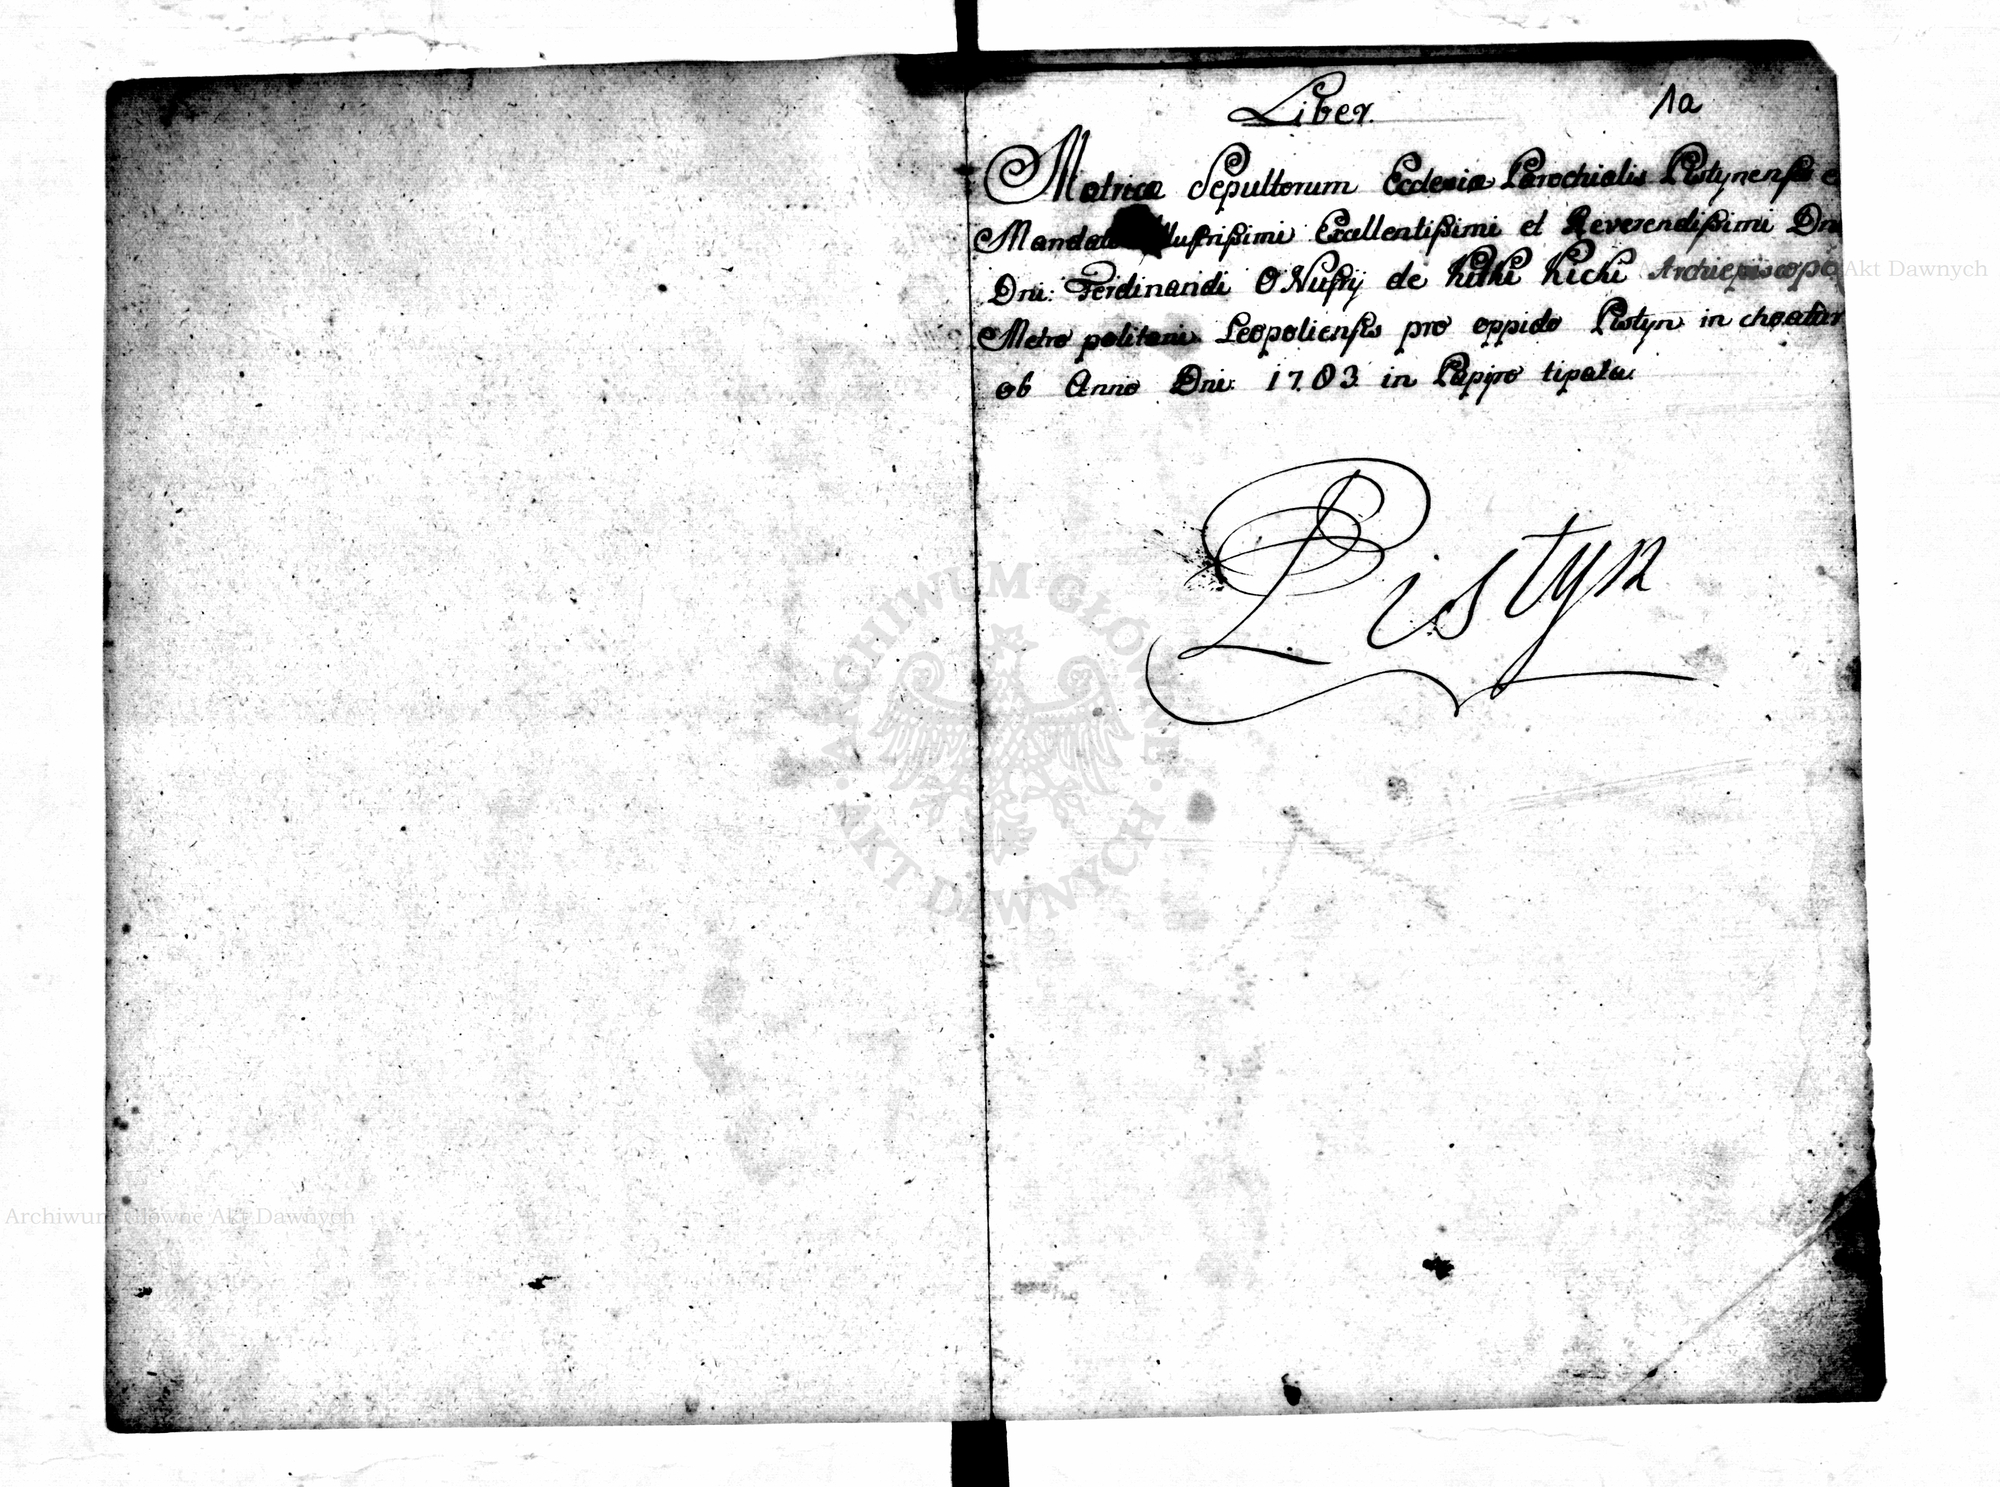 Liber.
1a
Matricæ Sepultorum Ecclesiæ Parochialis Pistynensis e
Mandato Illustrißimi Excellentißimi et Reverendißimi Dni
Dni: Ferdinandi ONufrij de Kitki Kicki Archiepiscopo
Metro politani Leopoliensis pro oppido Pistyn in choatur
ab Anno Dni: 1783 in Papiro tipata.
Pistyn
ARCHIWUM GŁÓWNE AKT DAWNYCH
Akt Dawnych
Archiwum Główne Akt Dawnych